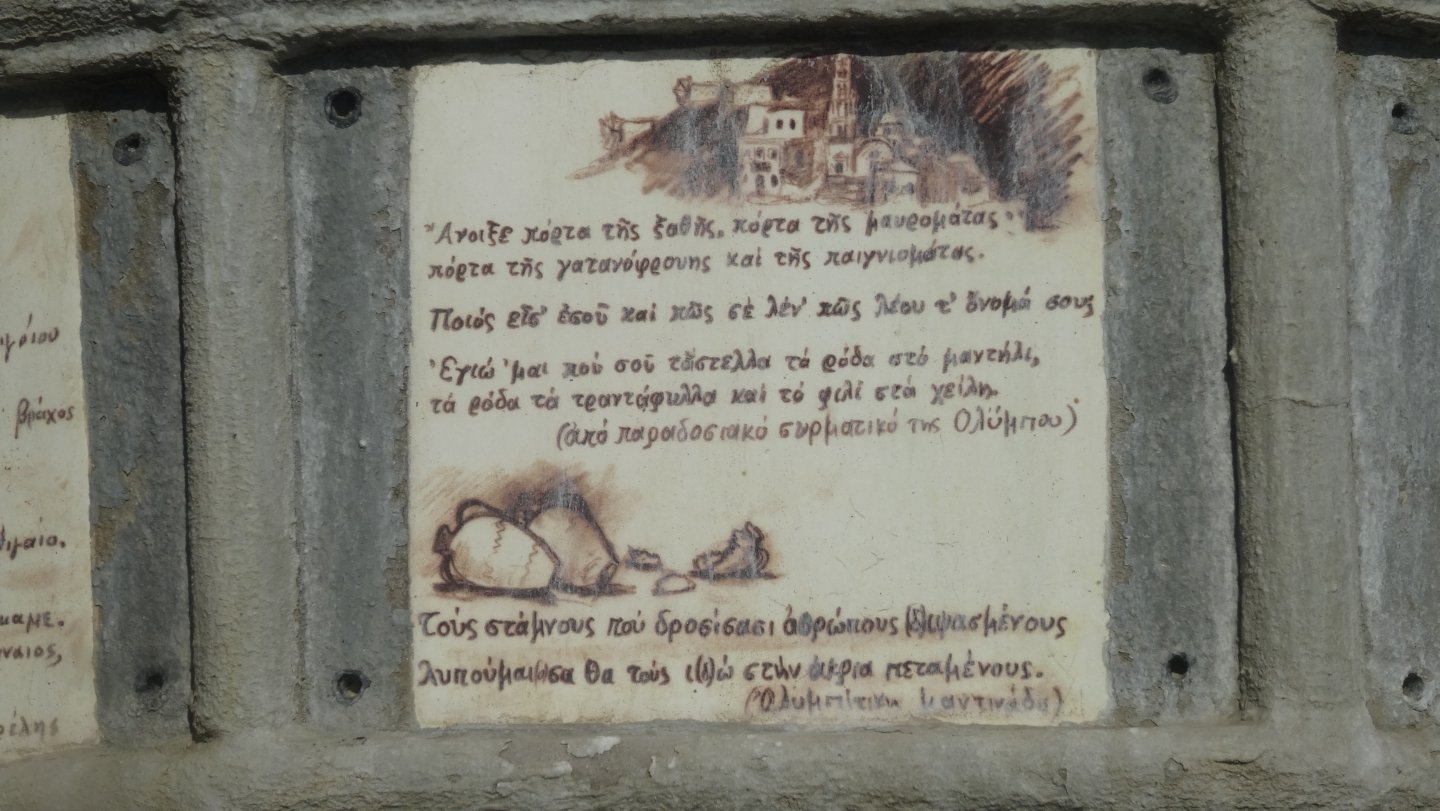 γόιου
βράχος
καμε.
ναιος,
ρέλης
Ἄνοιξε πόρτα τῆς ξαθῆς, πόρτα τῆς μαυρομάτας
πόρτα τῆς γατανόφρουης καί τῆς παιγνιομάτας.
Ποιός εἶσ' ἐσοῦ καί πῶς σέ λέν' πῶς λέου τ' ὄνομά σους
Ἐγιώ 'μαι πού σοῦ τἄστελλα τά ρόδα στό μαντήλι,
τά ρόδα τά τραντάφυλλα καί τό φιλί στά χείλη.
(ἀπό παραδοσιακό συρματικό της Ολύμπου)
Τούς στάμνους πού δροσίσασι ἀθρώπους (δ)ιψασμένους
λυπούμαι θα τούς ι(δ)ώ στήν ἀκρια πεταμένους.
(Ὀλυμπίτικη μαντινάδα)